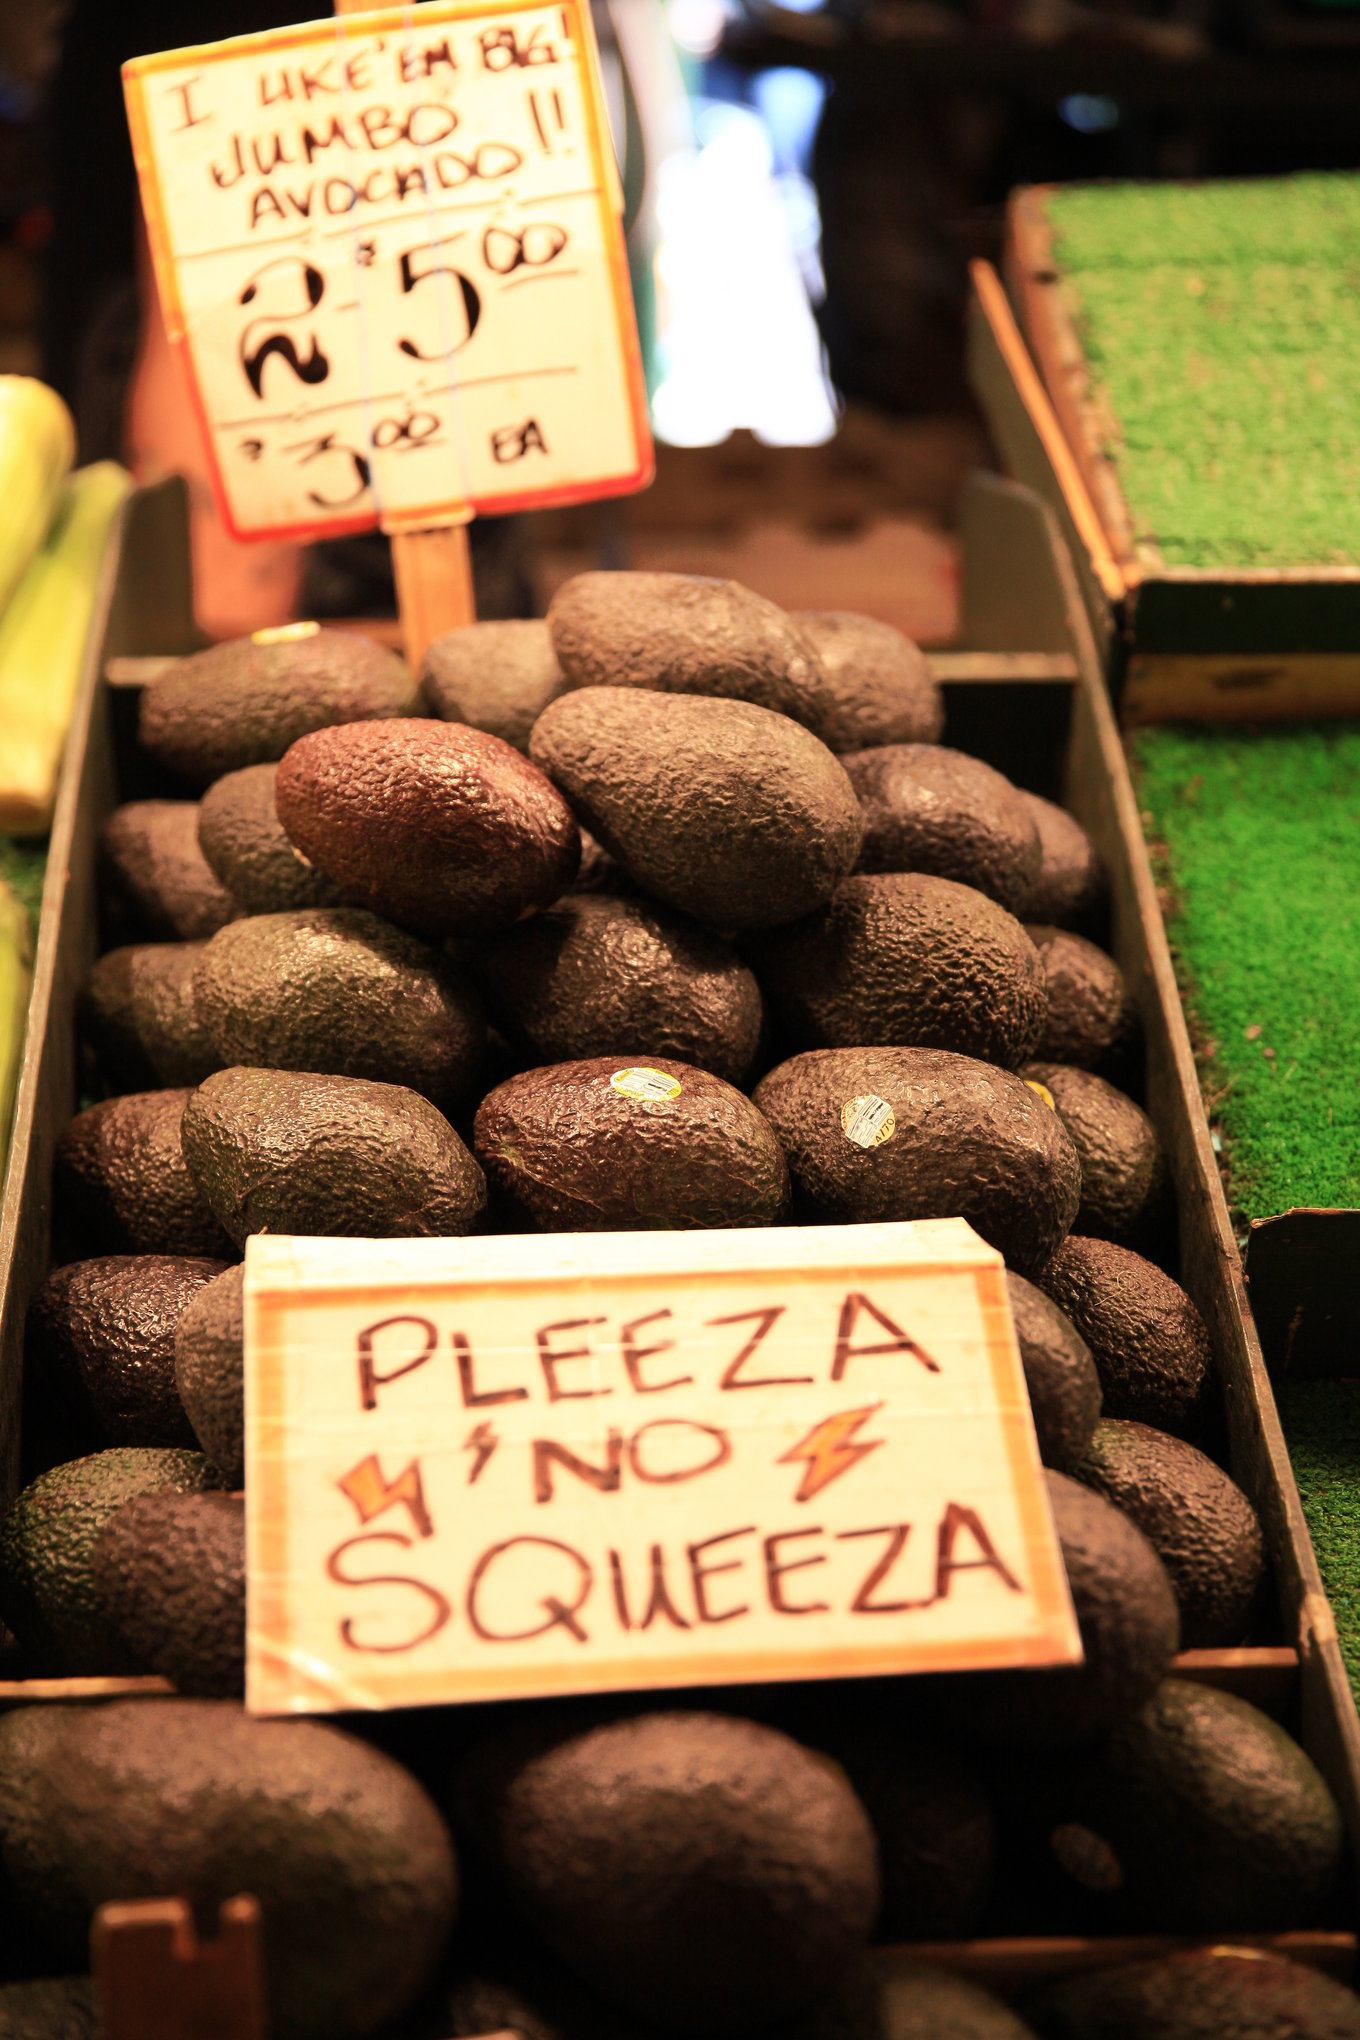 I LIKE'EM BIG!
JUMBO !!
AVOCADO
2 - $5.00
$3.00 EA
PLEEZA
'NO
SQUEEZA